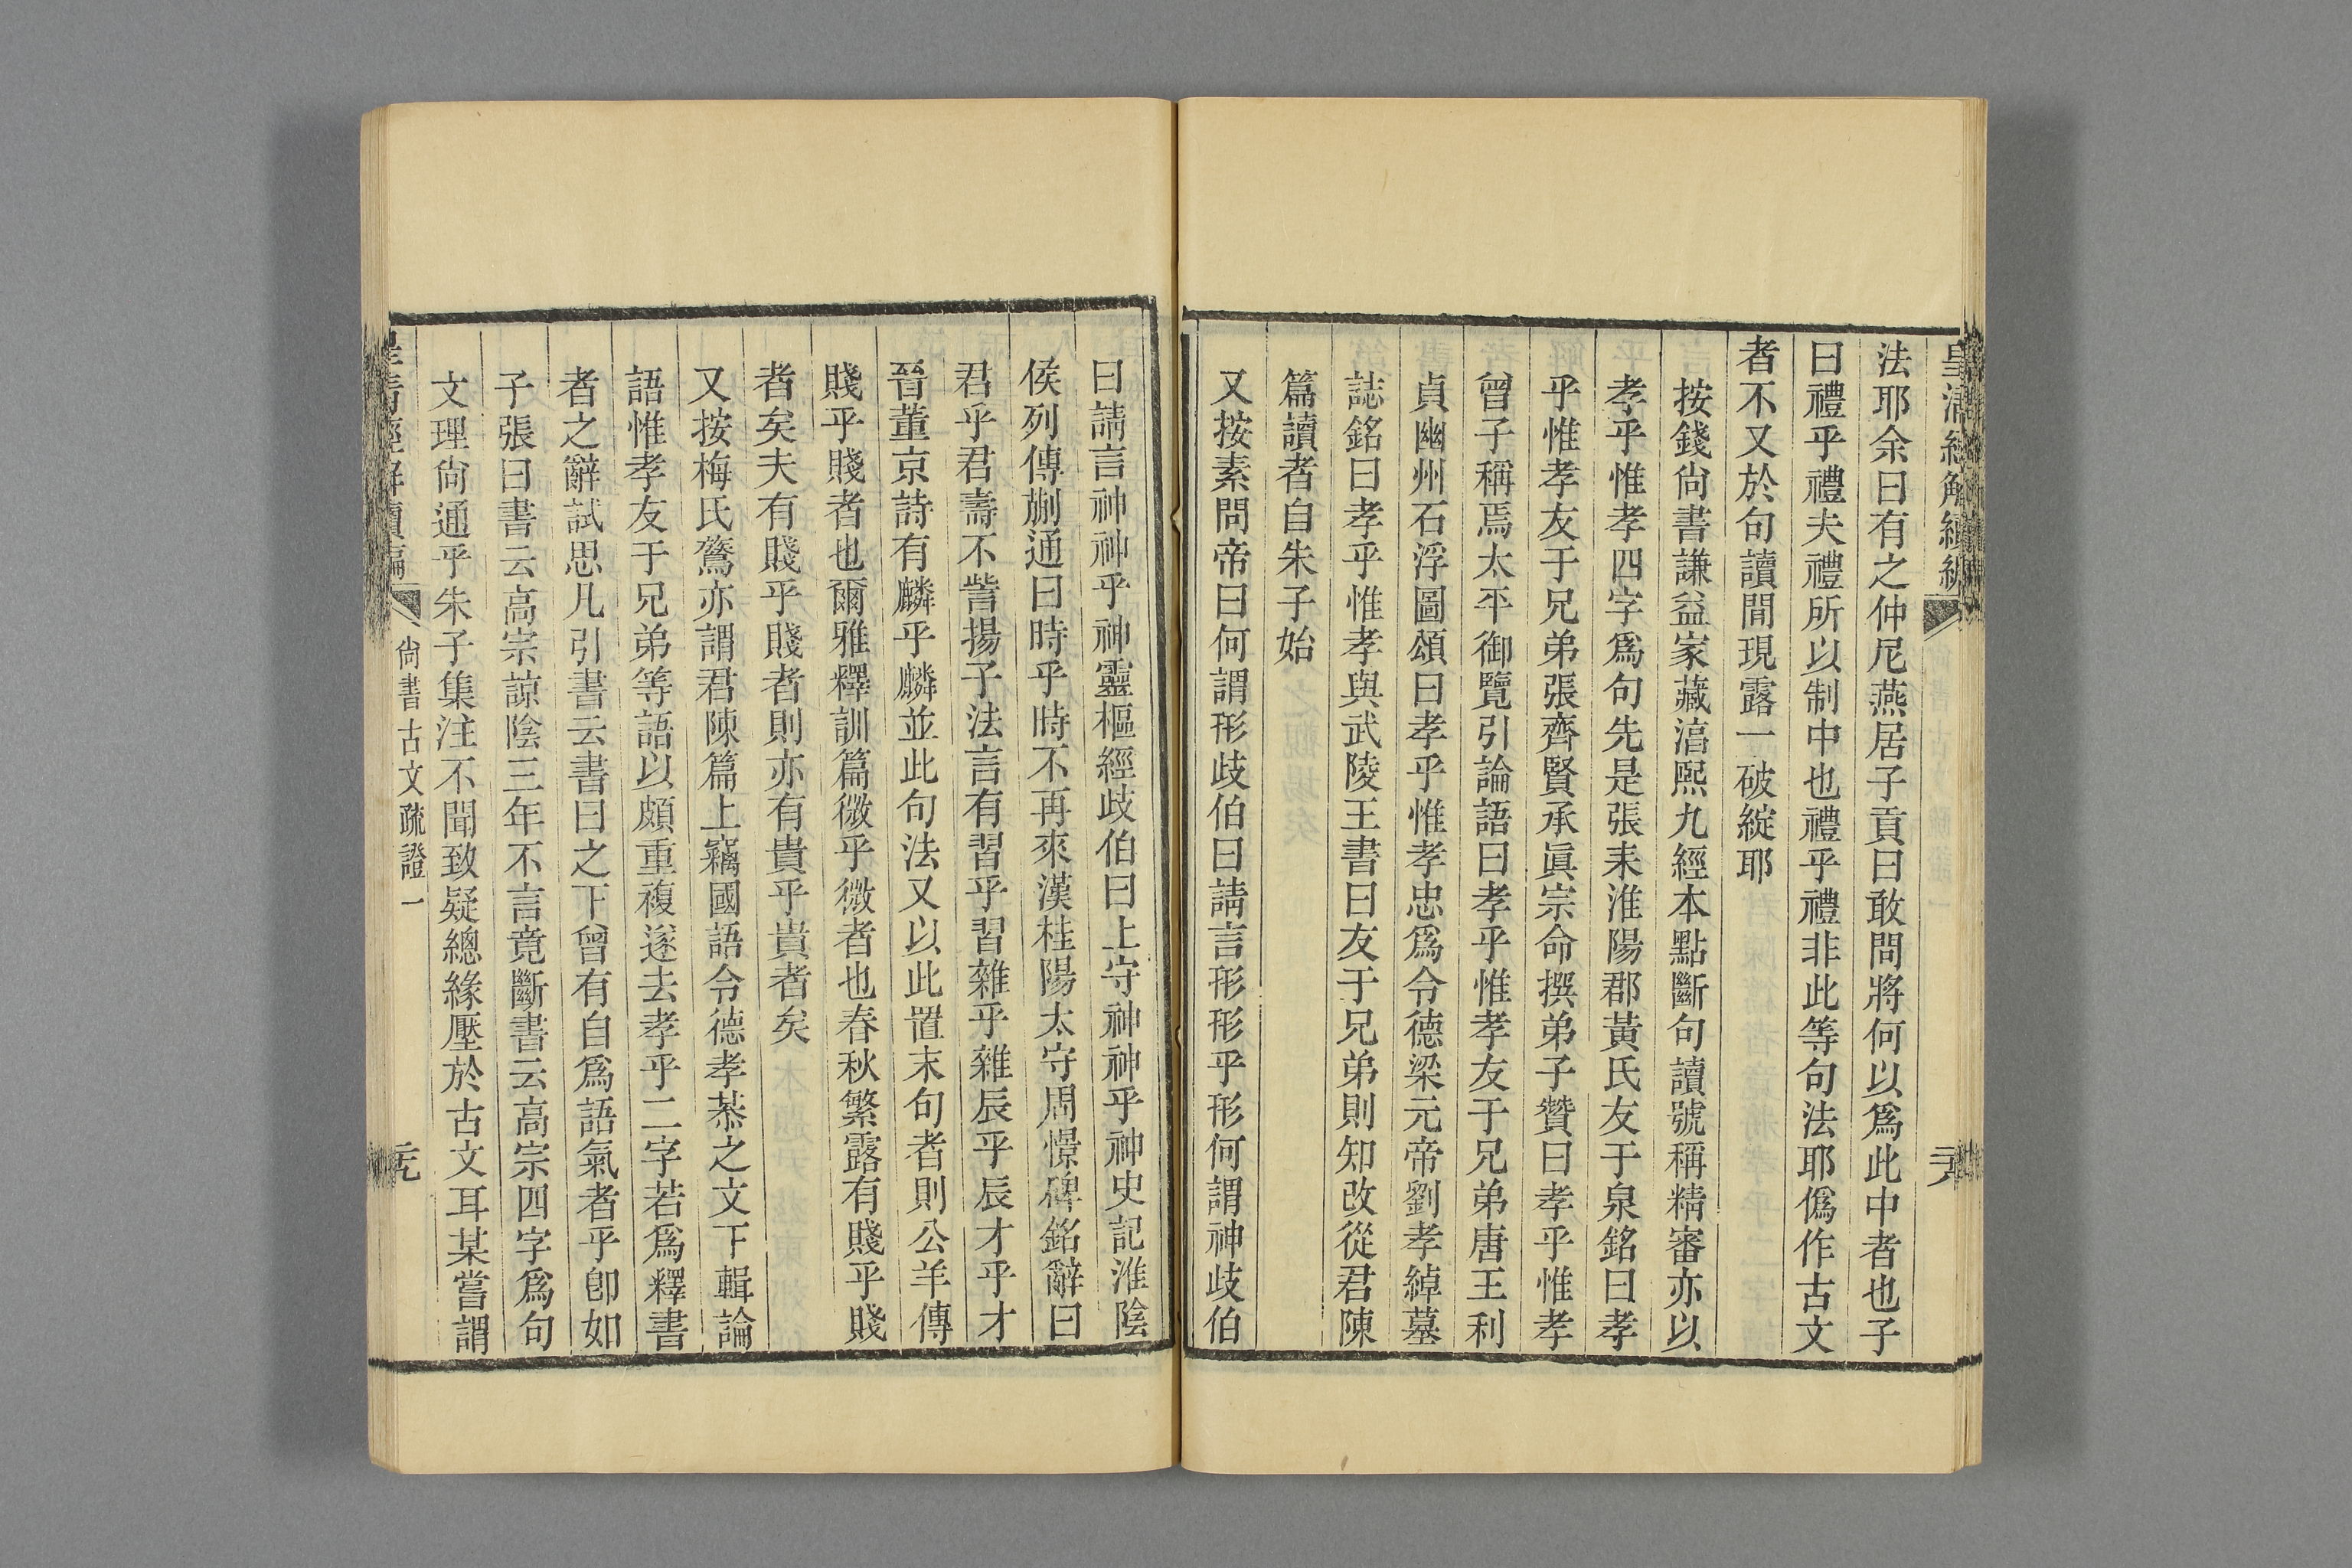 法耶余曰有之仲尼燕居子貢曰敢問將何以爲此中者也子
曰禮乎禮夫禮所以制中也禮乎禮非此等句法耶僞作古文
者不又於句讀間現露一破綻耶
按錢尙書謙益家藏淳熙九經本點斷句讀號稱精審亦以
孝乎惟孝四字爲句先是張耒淮陽郡黃氏友于泉銘曰孝
乎惟孝友于兄弟張齊賢承眞宗命撰弟子贊曰孝乎惟孝
曾子稱焉太平御覽引論語曰孝乎惟孝友于兄弟唐王利
貞幽州石浮圖頌曰孝乎惟孝忠爲令德梁元帝劉孝綽墓
誌銘曰孝乎惟孝與武陵王書曰友于兄弟則知改從君陳
篇讀者自朱子始
又按素問帝曰何謂形歧伯曰請言形形乎形何謂神歧伯
曰請言神神乎神靈樞經歧伯曰上守神神乎神史記淮陰
侯列傳蒯通曰時乎時不再來漢桂陽太守周憬碑銘辭曰
君乎君壽不訾揚子法言有習乎習雜乎雜辰乎辰才乎才
晉董京詩有麟乎麟並此句法又以此置末句者則公羊傳
賤乎賤者也爾雅釋訓篇微乎微者也春秋繁露有賤乎賤
者矣夫有賤乎賤者則亦有貴乎貴者矣
又按梅氏鷟亦謂君陳篇上竊國語令德孝恭之文下輯論
語惟孝友于兄弟等語以頗重複遂去孝乎二字若爲釋書
者之辭試思凡引書云書曰之下曾有自爲語氣者乎卽如
子張曰書云高宗諒陰三年不言竟斷書云高宗四字爲句
文理尙通乎朱子集注不聞致疑總緣壓於古文耳某嘗謂
尙書古文疏證一